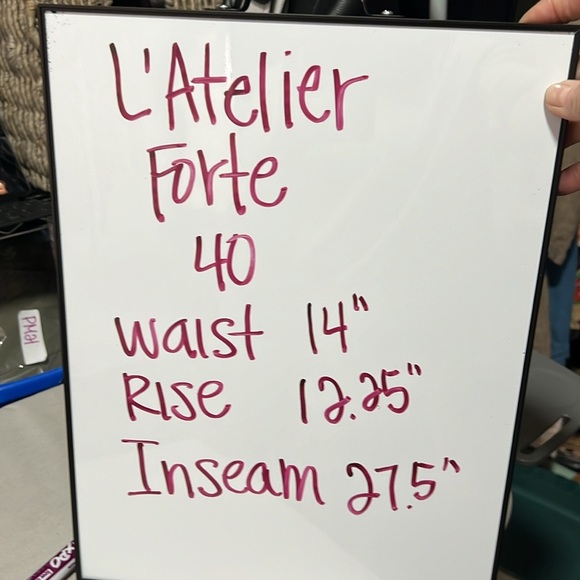 L'Atelier
Forte
40
Waist 14"
Rise 12.25"
Inseam 27.5"